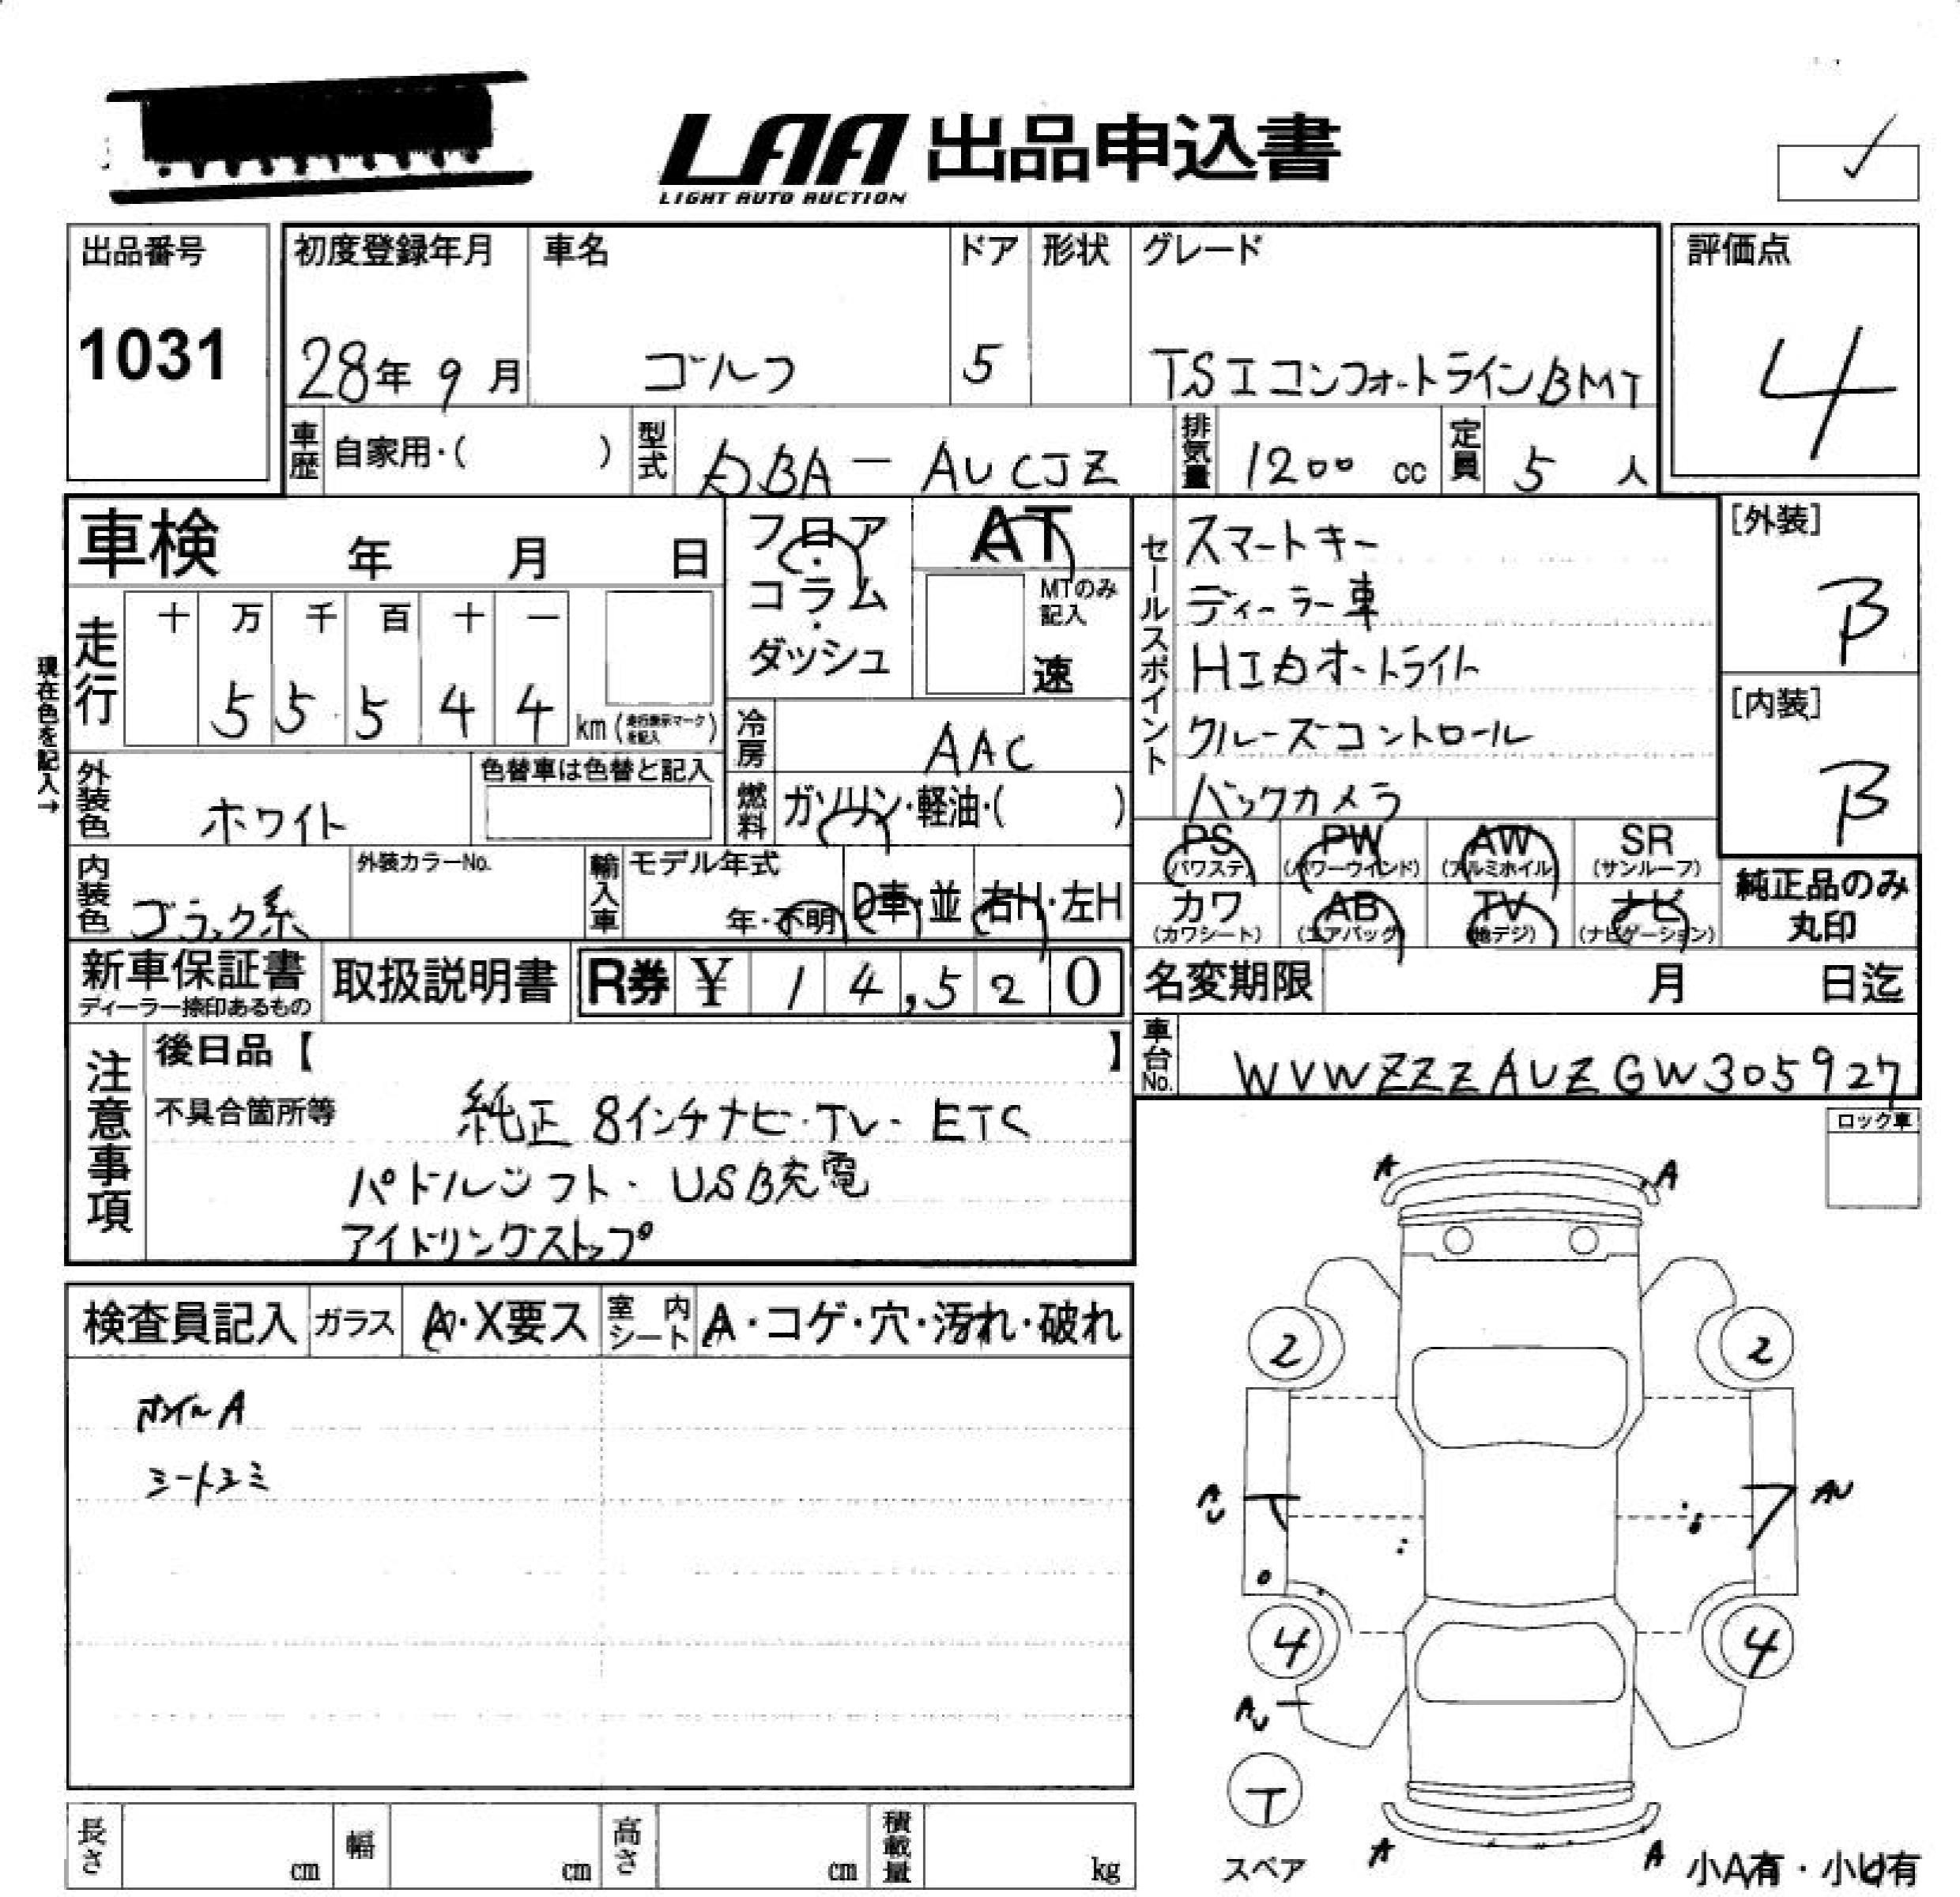 LAA 出品申込書
LIGHT AUTO AUCTION
出品番号
1031
初度登録年月
28年 9月
車名
ゴルフ
ドア
5
形状
グレード
TSIコンフォートラインBMT
評価点
4
車歴 自家用・( )
型式 DBA-AUCJZ
排気量 1200 cc
定員 5 人
車検 年 月 日
フロア・コラム・ダッシュ
AT
MTのみ記入
速
走行 十 万 千 百 十 一
5 5 5 4 4 km (走行表示マークを記入)
現在色を記入→
外装色 ホワイト
色替車は色替と記入
冷房 AAC
燃料 ガソリン・軽油・( )
内装色 ブラック系
外装カラーNo.
輸入車 モデル年式
年・不明
D車・並
右H・左H
セールスポイント
スマートキー
ディーラー車
HIDオートライト
クルーズコントロール
バックカメラ
[外装]
B
[内装]
B
PS (パワステ)
PW (パワーウインド)
AW (アルミホイル)
SR (サンルーフ)
カワ (カワシート)
AB (エアバッグ)
TV (地デジ)
ナビ (ナビゲーション)
純正品のみ丸印
新車保証書
ディーラー捺印あるもの
取扱説明書
R券 ¥ 14,520
名変期限 月 日迄
車台No. WVWZZZAUZGW305927
注意事項
後日品【 】
不具合箇所等
純正8インチナビ・TV・ETC
パドルシフト・USB充電
アイドリングストップ
ロック車
検査員記入
ガラス A・X要ス
室内シート A・コゲ・穴・汚れ・破れ
ホイルA
シートシミ
A A
2 2
AU AU
4 4
AU
T
スペア
A A
小A有・小U有
長さ cm
幅 cm
高さ cm
積載量 kg